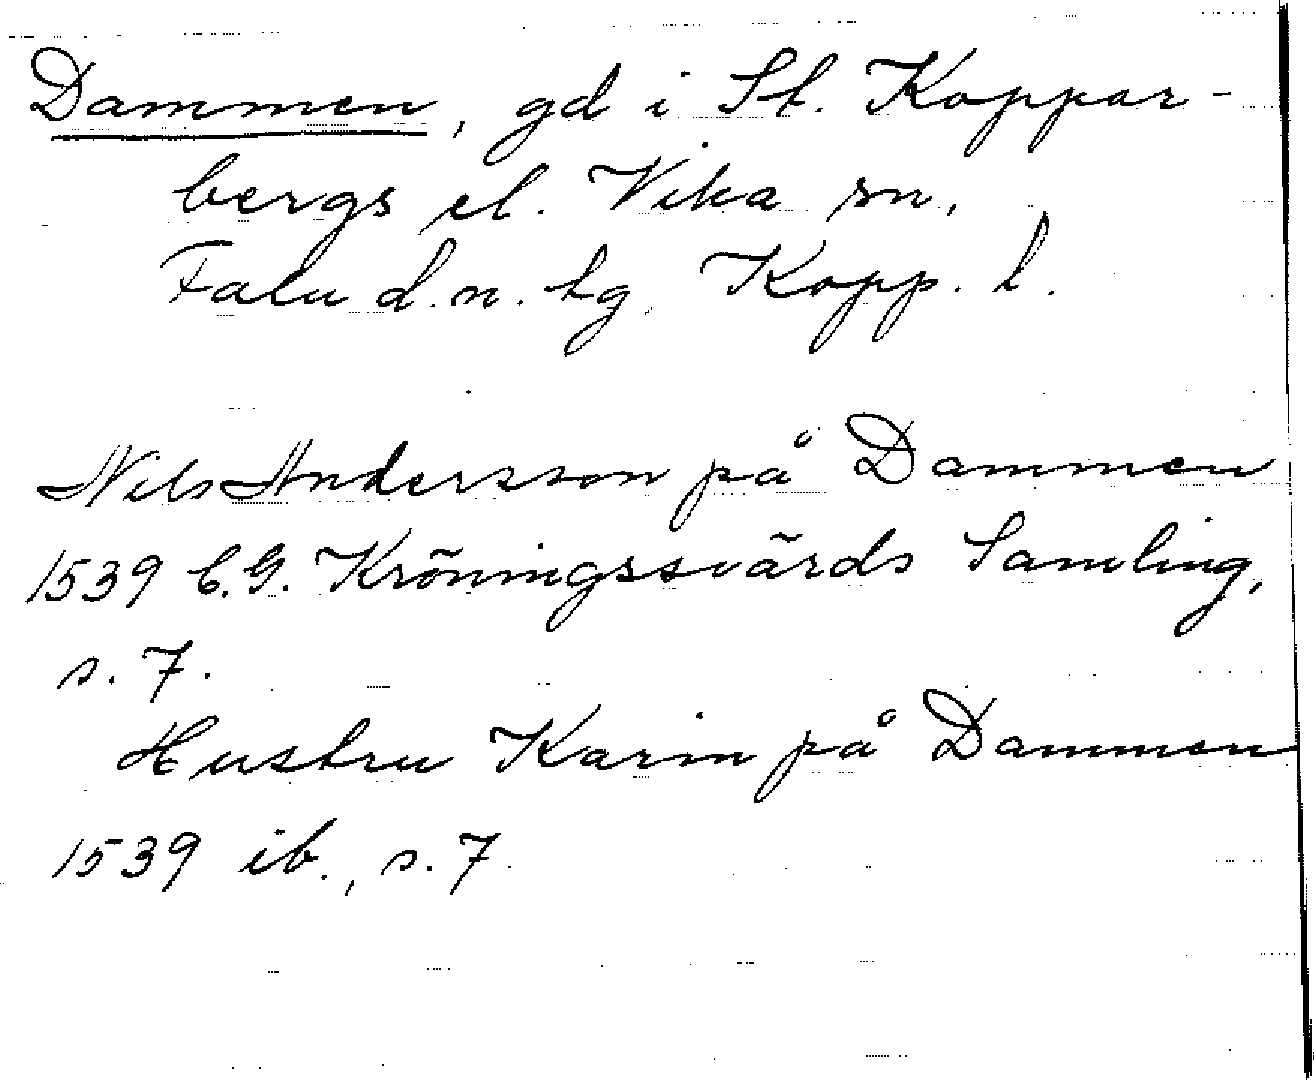 Dammen, gd i St. Koppar-
bergs el. Vika sn,
Falu d.n. tg, Kopp. l.
Nils Andersson på Dammen
1539 C.G. Kröningssvärds Samling,
s. 7.
Hustru Karin på Dammen
1539 ib., s. 7